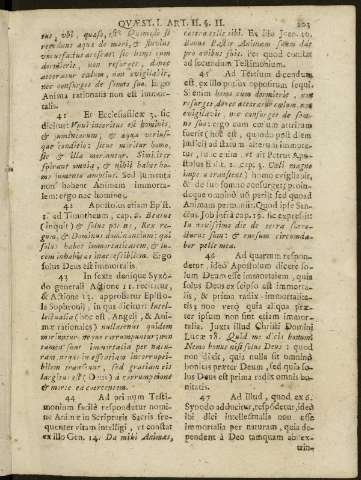 QUÆST. I. ART. II. §. II. 203
tus, ubi, quæso, est? Quomodo si
recedant aquæ de mari, & fluvius
vacuefactus arescat: sic homo cum
dormierit, non resurget, donec
atteratur cælum, non evigilabit,
nec consurget de somno suo. Ergo
Anima rationalis non est immor-
talis.
41 Et Ecclesiastes 3. sic
dicitur: Unus interitus est hominis,
& jumentorum, & æqua utrius-
que conditio: sicut moritur homo,
sic & illa moriuntur. Similiter
spirant omnia, & nihil habet ho-
mo jumento amplius. Sed jumenta
non habent Animam immorta-
lem: ergo nec homo.
42 Apostolus etiam Epist.
1. ad Timotheum, cap. 6. Beatus
(inquit) & solus potens, Rex re-
gum, & Dominus dominantium: qui
solus habet immortalitatem, & lu-
cem inhabitat inaccessibilem. Ergo
solus Deus est immortalis.
43 In sexta denique Syno-
do generali Actione 11. recitatur,
& Actione 13. approbatur Episto-
la Sophronii, in qua dicitur: Intel-
lectualia (hoc est, Angeli, & Ani-
mæ rationales) nullatenus quidem
moriuntur, neque corrumpuntur; non
tamen sunt immortalia per natu-
ram, neque in essentiam incorrupti-
bilem transeunt, sed gratiam eis
largitus est (Deus) à corruptione
& morte eas coercentem.
44 Ad primum Testi-
monium facilè respondetur nomi-
ne Animæ in Scripturis Sacris fre-
quenter vitam intelligi, ut constat
ex illo Gen. 14. Da mihi Animas,
cætera tolle tibi. Et illo Joan. 10.
Bonus Pastor Animam suam dat
pro ovibus suis. Per quod constat
ad secundum Testimonium.
45 Ad Tertium dicendum
est, ex illo potius oppositum sequi.
Si enim homo cum dormierit, non
resurget, donec atteratur cælum, non
evigilabit, nec consurget de som-
no suo: ergo cum cælum attritum
fuerit (hoc est, quando post diem
judicii ad statum alium immute-
tur, in quo enim, ut ait Petrus Apo-
stolus Epist. 2. cap. 3. Cæli magno
impetu transient) homo evigilabit,
& de suo somno consurget; proin-
deque omninò non periit sed quoad
Animam permanet. Quod ipse San-
ctus Job suprà cap. 19. sic expressit:
In novissimo die de terra surre-
cturus sum: & rursum circumda-
bor pelle mea.
46 Ad quartum respon-
detur, ideò Apostolum dicere so-
lum Deum esse immortalem, quia
solus Deus est ipsa immortalitas,
& prima radix immortalita-
tis; non verò quia aliqua præ-
ter ipsum non sint etiam immor-
talia. Juxta illud Christi Domini
Lucæ 18. Quid me dicis bonum?
Nemo bonus nisi solus Deus: quod
non dicit, quia nulli sit omninò
bonitas præter Deum, sed quia so-
lus Deus est prima radix omnis bo-
nitatis.
47 Ad illud, quod ex 6.
Synodo adducitur, respondetur, ideò
ibi dici intellectualia non esse
immortalia per naturam, quia de-
pendent à Deo tamquam ab ex-
trin-